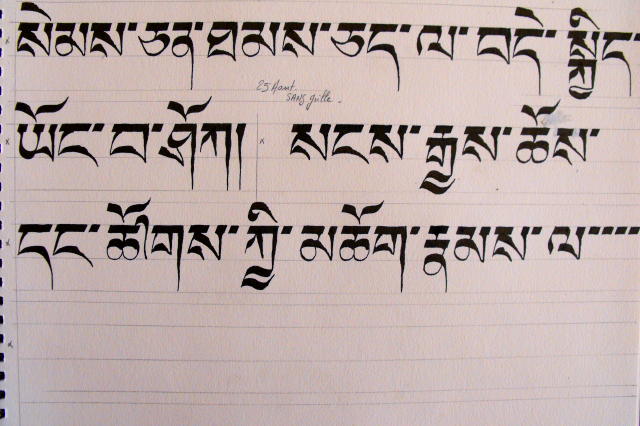 སེམས་ཅན་ཐམས་ཅད་ལ་བདེ་སྐྱིད་
25 Aout.
SANS grille.
ཡོང་བ་ཤོག། སངས་རྒྱས་ཆོས་
དང་ཚོགས་ཀྱི་མཆོག་རྣམས་ལ་་་་